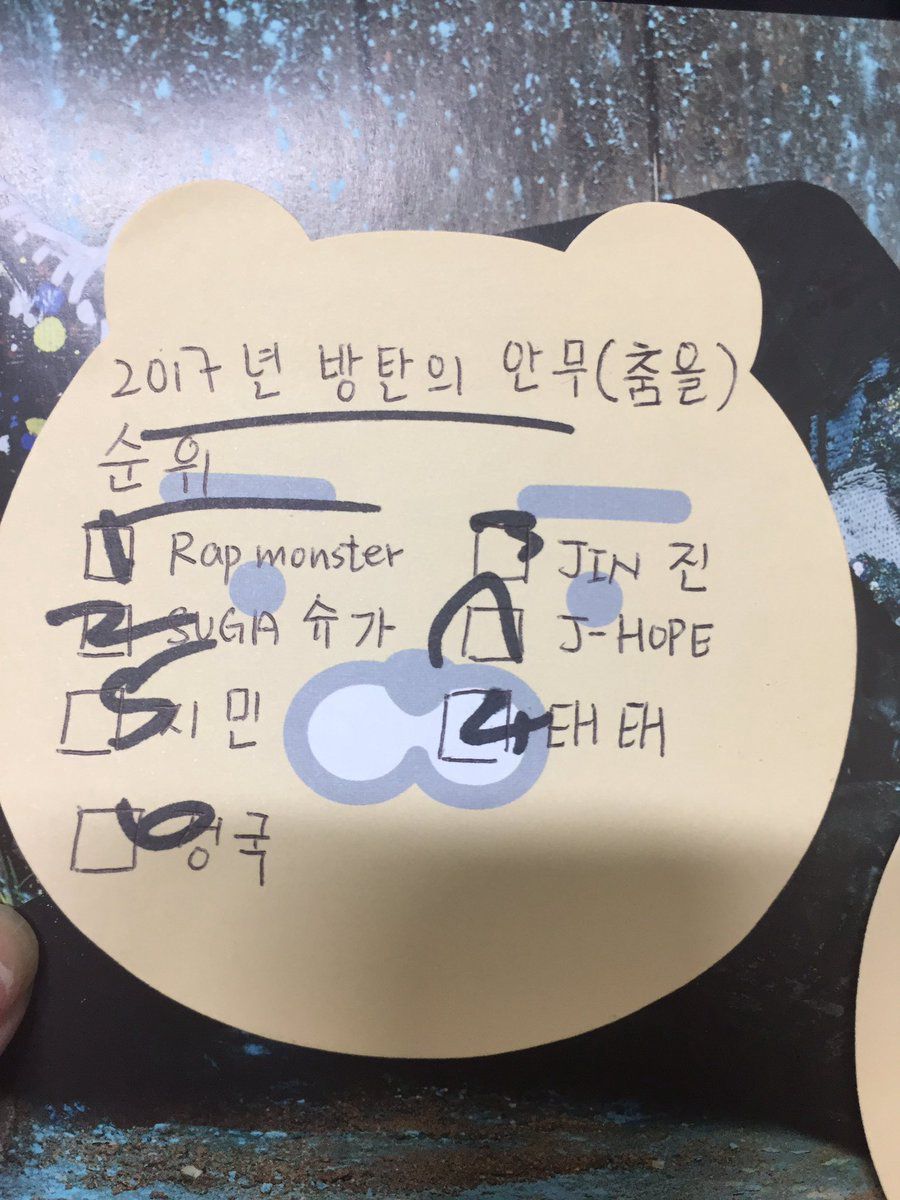 2017년 방탄의 안무(춤을)
순위
1 Rap monster 3 JIN 진
2 SUGA 슈가 7 J-HOPE
5 지민 4 태태
6 정국